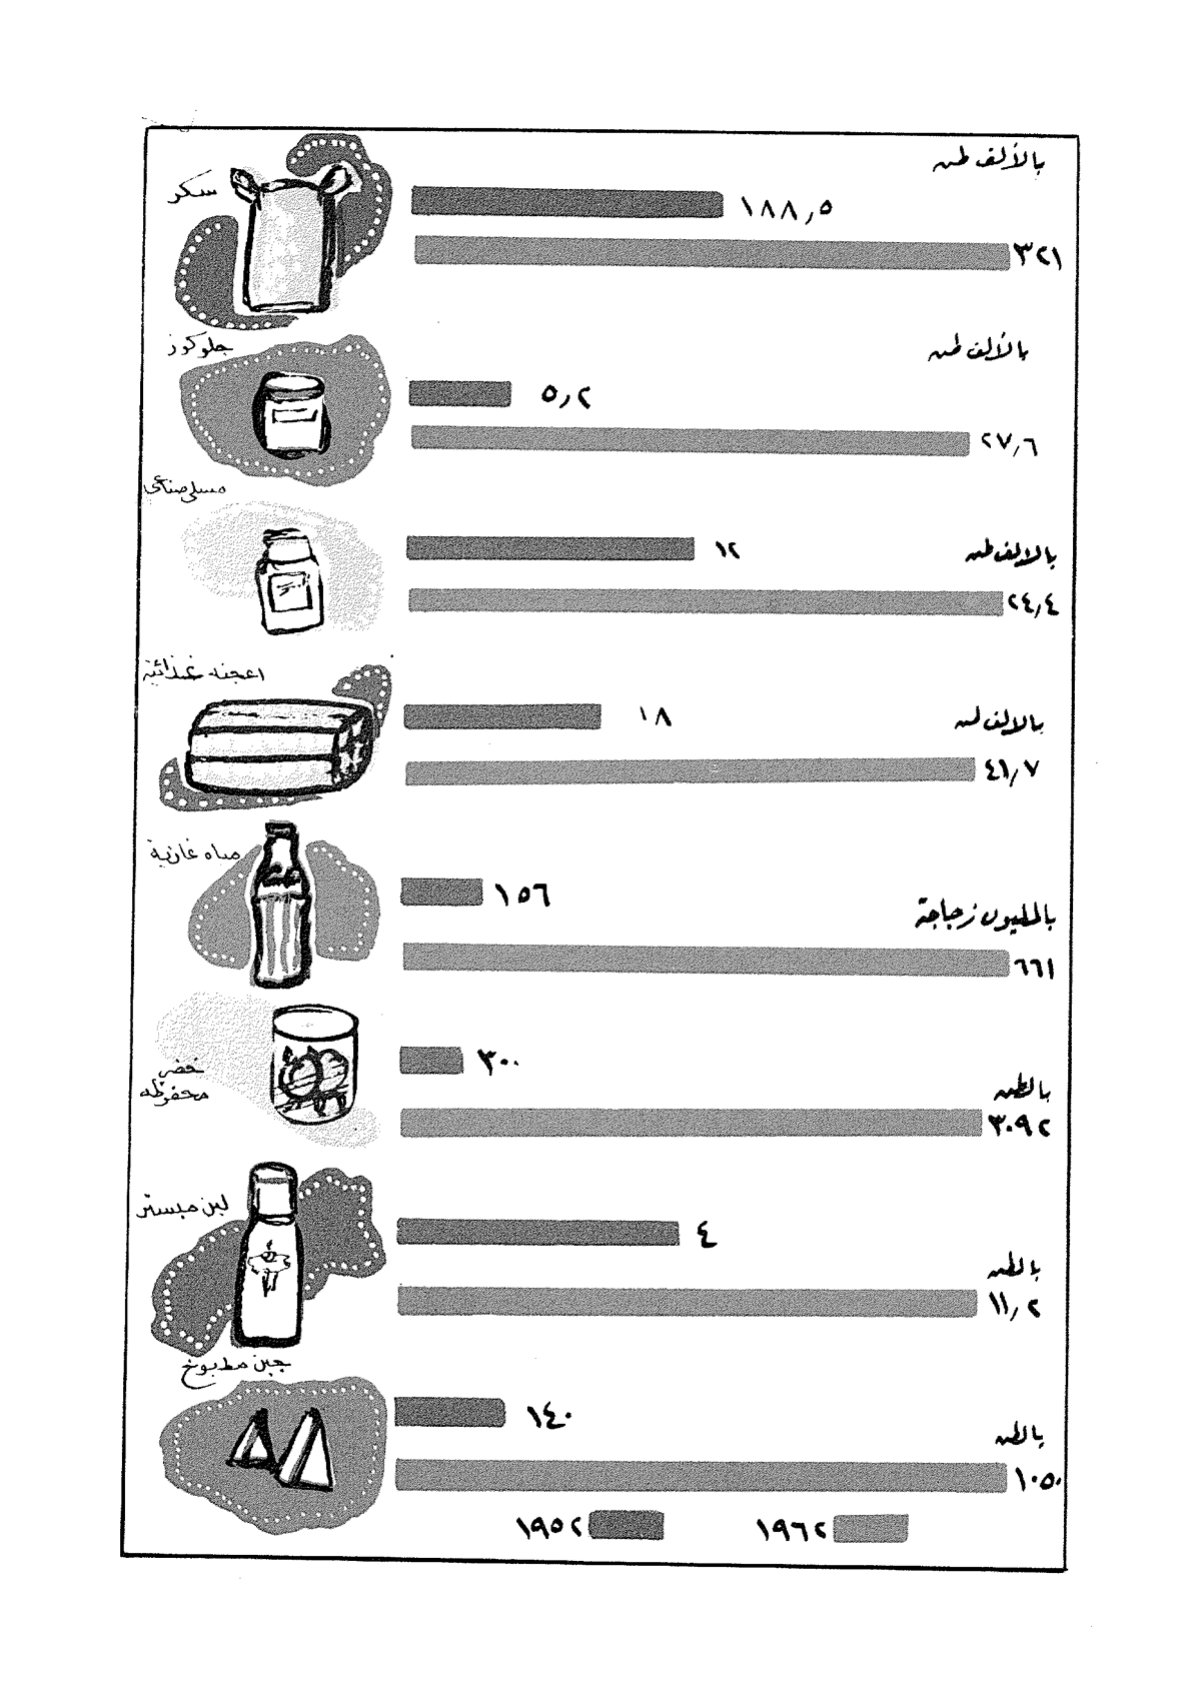 بالألف طن
سكر
١٨٨٫٥
٣٢١
بالألف طن
جلوكوز
٥٫٢
٢٧٫٦
مسلى صناعى
بالالف طن
١٢
٢٤٫٤
اعجنه غذائية
بالالف طن
١٨
٤١٫٧
مياه غازية
١٥٦
بالمليون زجاجة
٦٦١
خضر
محفوظه
٣٠٠
بالطن
٣٠٩٢
لبن مبستر
٤
بالطن
١١٫٢
جبن مطبوخ
١٤٠
بالطن
١٠٥٠
١٩٦٢
١٩٥٢